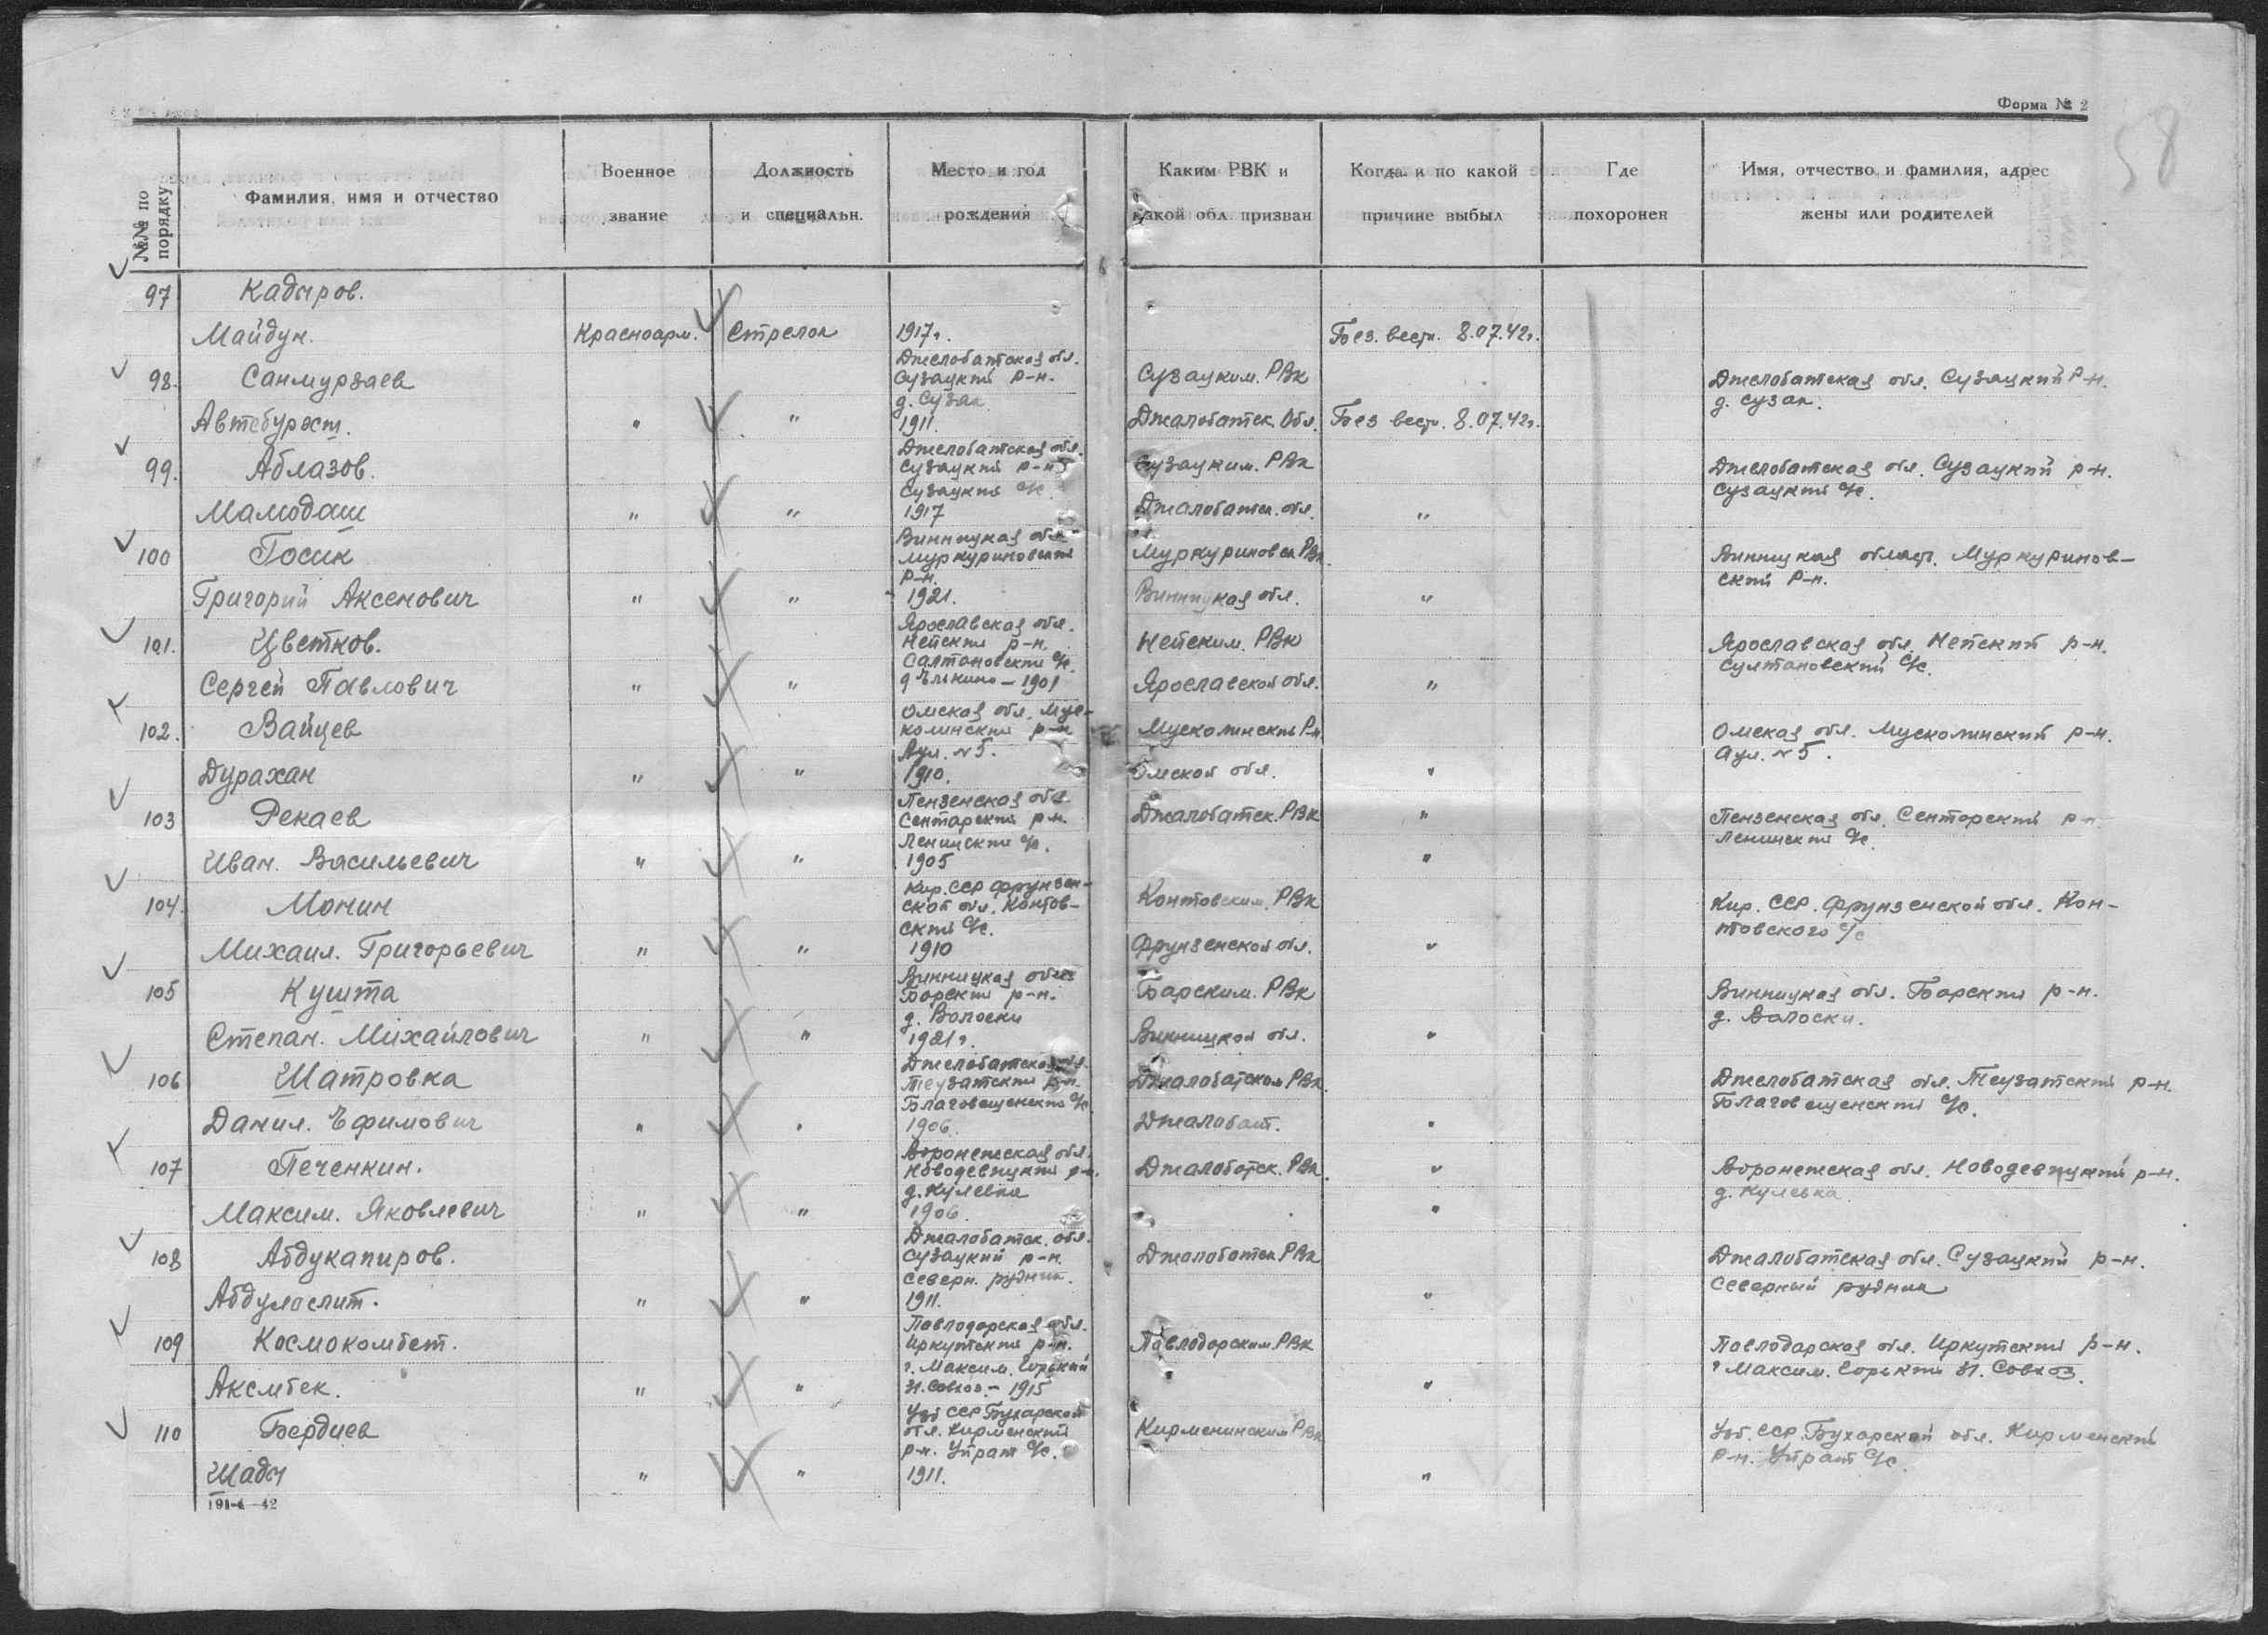 Форма № 2
58
№№ по порядку
Фамилия, имя и отчество
Военное звание
Должность и специальн.
Место и год рождения
Каким РВК и какой обл. призван
Когда и по какой причине выбыл
Где похоронен
Имя, отчество и фамилия, адрес жены или родителей
97 Кадыров.
Майдун. Красноарм. Стрелок 1917г. Без. вести. 8.07.42г.
Джелобатская обл.
98. Санмурзаев Сузацкий р-н. Сузацким. РВК Джелобатская обл. Сузацкий р-н.
д. Сузак д. Сузак.
Автебурост. " " 1911. Джалобатск. Обл. Без вести. 8.07.42г.
Джелобатская обл.
99. Аблазов. Сузацкий р-н Сузацким. РВК Джелобатская обл. Сузацкий р-н.
Сузацкий с/с. Сузацкий с/с.
Мамодаш " " 1917 Джалобатск. обл. "
Винницкая обл.
100 Госик Муркуриновский Муркуриновск РВК. Винницкая област. Муркуринов-
р-н. ский р-н.
Григорий Аксенович " " 1921. Винницкая обл. "
Ярославская обл.
101. Цветков. Нейский р-н. Нейским. РВК Ярославская обл. Нейский р-н.
Салтановский с/с. Султановский с/с.
Сергей Павлович " " д Елькино - 1901 Ярославской обл. "
Омская обл. Мус-
102. Вайцев колинский р-н Мусколинский Р-н Омская обл. Мусколинский р-н.
Аул. №5. Аул. №5.
Дурахан " " 1910. Омской обл. "
Пензенская обл.
103 Рекаев Сентарский р-н. Джалобатск. РВК " Пензенская обл. Сенторский р-н
Ленинский с/с. Ленинский с/с.
Иван. Васильевич " " 1905 "
Кир. ССР Фрунзен-
104. Монин ской обл. Контов- Контовским. РВК Кир. ССР. Фрунзенской обл. Кон-
ский с/с. товского с/с
Михаил. Григорьевич " " 1910 Фрунзенской обл. "
Винницкая обл.
105 Кушта Барский р-н. Барским. РВК Винницкая обл. Барский р-н.
д. Волоски д. Волоски.
Степан. Михайлович " " 1921г. Винницкой обл. "
Джелобатская обл.
106 Шатровка Теузатский р-н. Джалобатском РВК. Джелобатская обл. Теузатский р-н.
Благовещенский с/с. Благовещенский с/с.
Данил. Ефимович " " 1906. Джалабат. "
Воронежская обл.
107 Печенкин. Новодевицкий р-н. Джалоботск. РВК. " Воронежская обл. Новодевицкий р-н.
д. Кулевка д. Кулевка
Максим. Яковлевич " " 1906. "
Джалобатск. обл.
108 Абдукапиров. Сузацкий р-н. Джалобатск РВК Джалобатская обл. Сузацкий р-н.
Северн. рудник. Северный рудник
Абдулослит. " " 1911. "
Павлодарская обл.
109 Космокомбет. Иркутский р-н. Павлодорским РВК Павлодарская обл. Иркутский р-н.
г. Максим. Горький г Максим. Горький Зт. Совхоз.
Аксмбек. " " Зт. Совхоз. - 1915 "
Узб ССР Бухарской
110 Бердиев обл. Кирменский Кирменинским РВК Узб. ССР. Бухарской обл. Кирменский
р-н. Уйрат с/с. р-н. Уйрат с/с.
Шады " " 1911. "
191-4-42